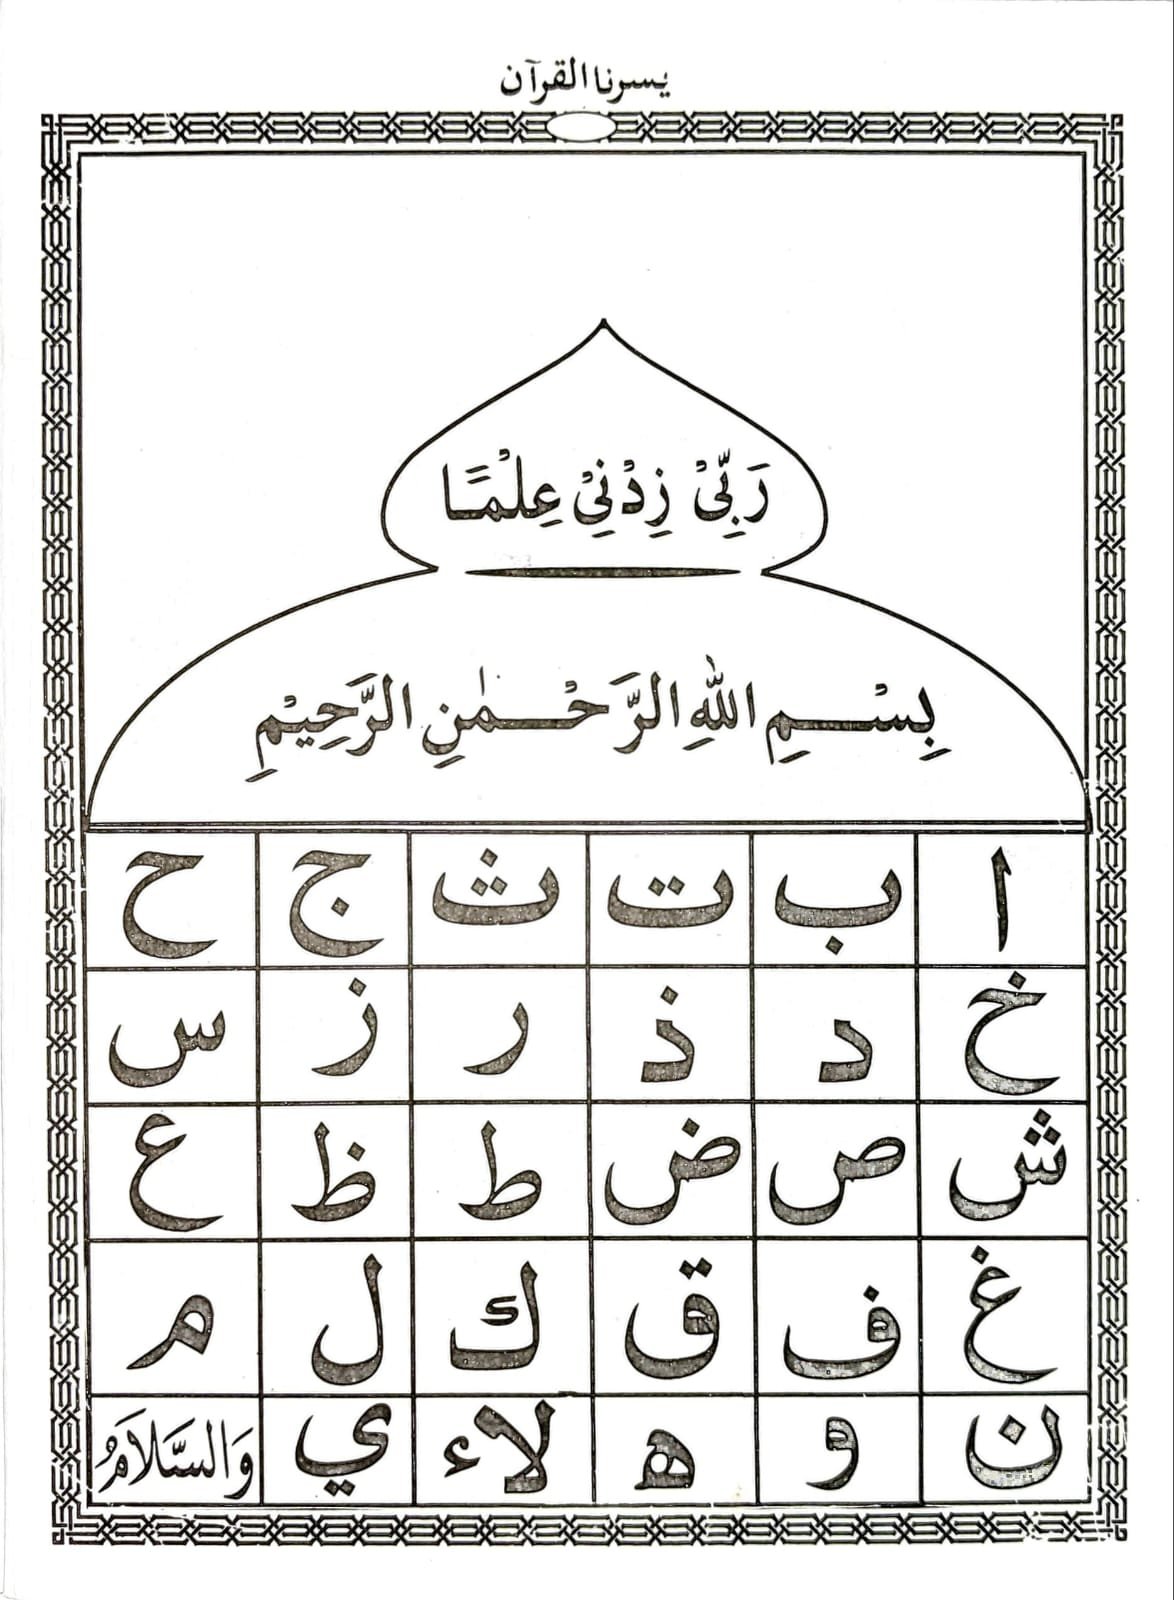 يسرنا القرآن
رَبِّیْ زِدْنِیْ عِلْمًا
بِسْمِ اللّٰهِ الرَّحْمٰنِ الرَّحِيْمِ
ا ب ت ث ج ح
خ د ذ ر ز س
ش ص ض ط ظ ع
غ ف ق ك ل م
ن و ه لاء ي وَالسَّلَامُ